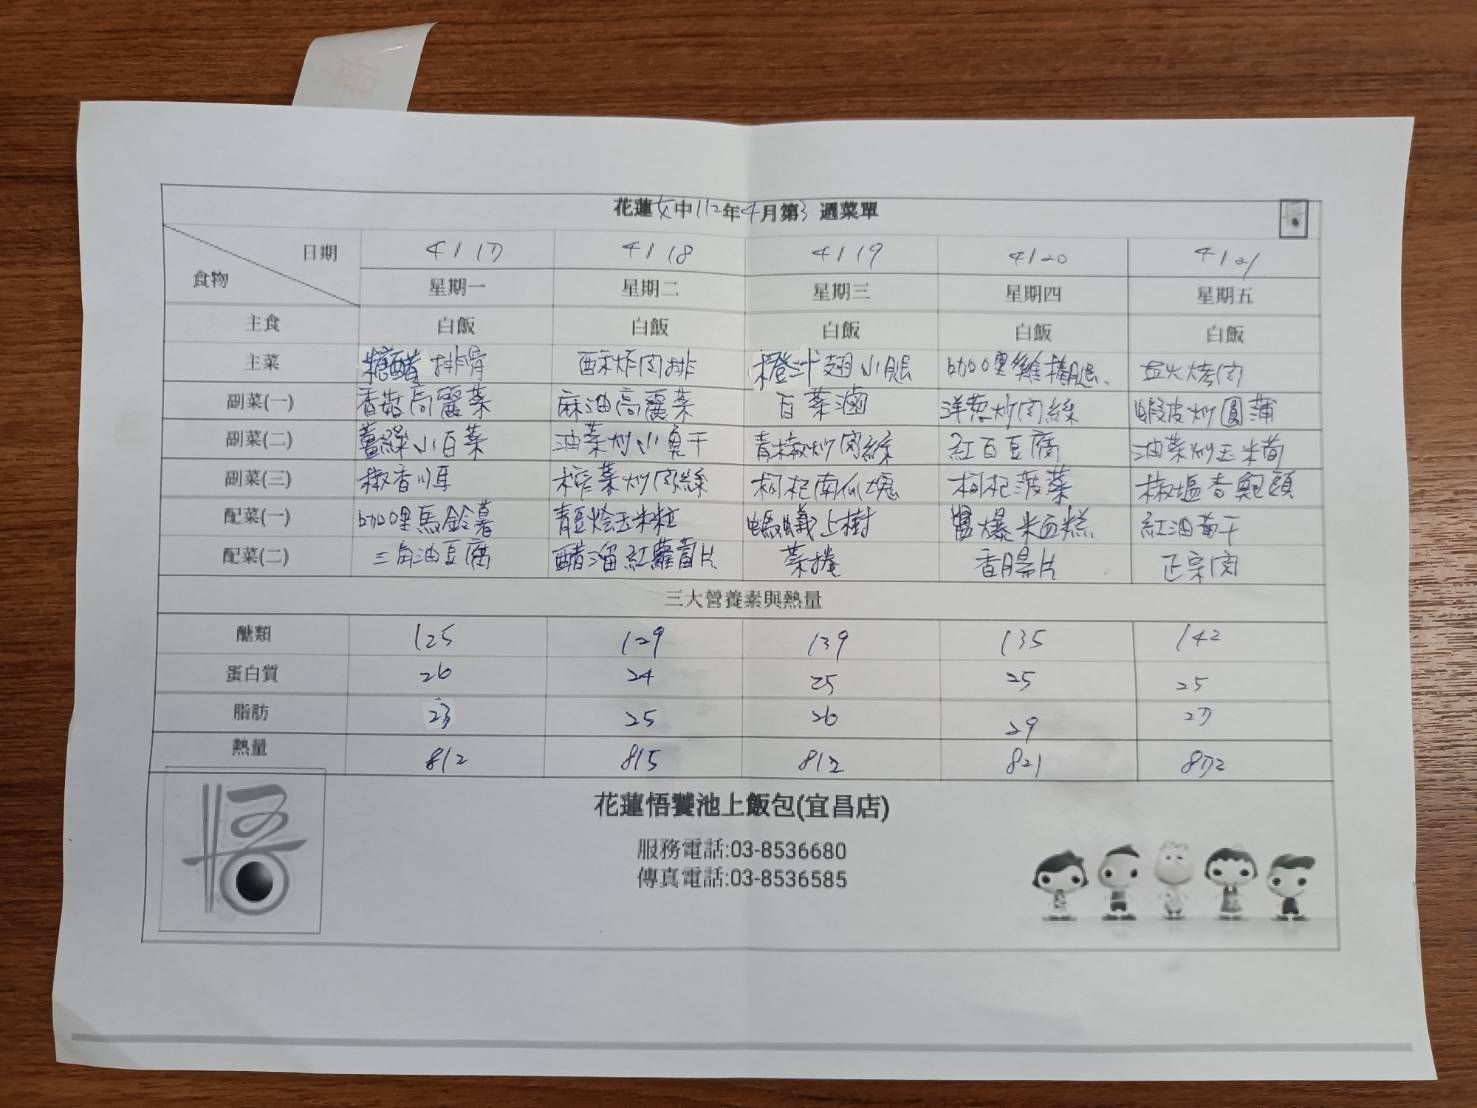 花蓮女中112年4月第3週菜單
日期 4/17 4/18 4/19 4/20 4/21
食物 星期一 星期二 星期三 星期四 星期五
主食 白飯 白飯 白飯 白飯 白飯
主菜 糖醋排骨 酥炸肉排 橙汁翅小腿 咖哩雞擋腿 盐火烤肉
副菜(一) 香菇高麗菜 麻油高麗菜 白菜滷 洋葱炒肉絲 蝦皮炒圓蒲
副菜(二) 薑絲小白菜 油菜炒小魚干 青椒炒肉絲 紅白豆腐 油菜炒玉米筍
副菜(三) 椒香川耳 榨菜炒肉絲 枸杞南瓜塊 枸杞菠菜 椒塩杏鮑頭
配菜(一) 咖哩馬鈴薯 青豆燴玉米粒 螞蟻上樹 醬爆米血糕 紅油筍干
配菜(二) 三角油豆腐 醋溜紅蘿蔔片 菜捲 香腸片 正宗肉
三大營養素與熱量
醣類 125 129 139 135 142
蛋白質 26 24 25 25 25
脂肪 23 25 26 29 27
熱量 812 815 812 821 872
花蓮悟饕池上飯包(宜昌店)
服務電話:03-8536680
傳真電話:03-8536585
悟